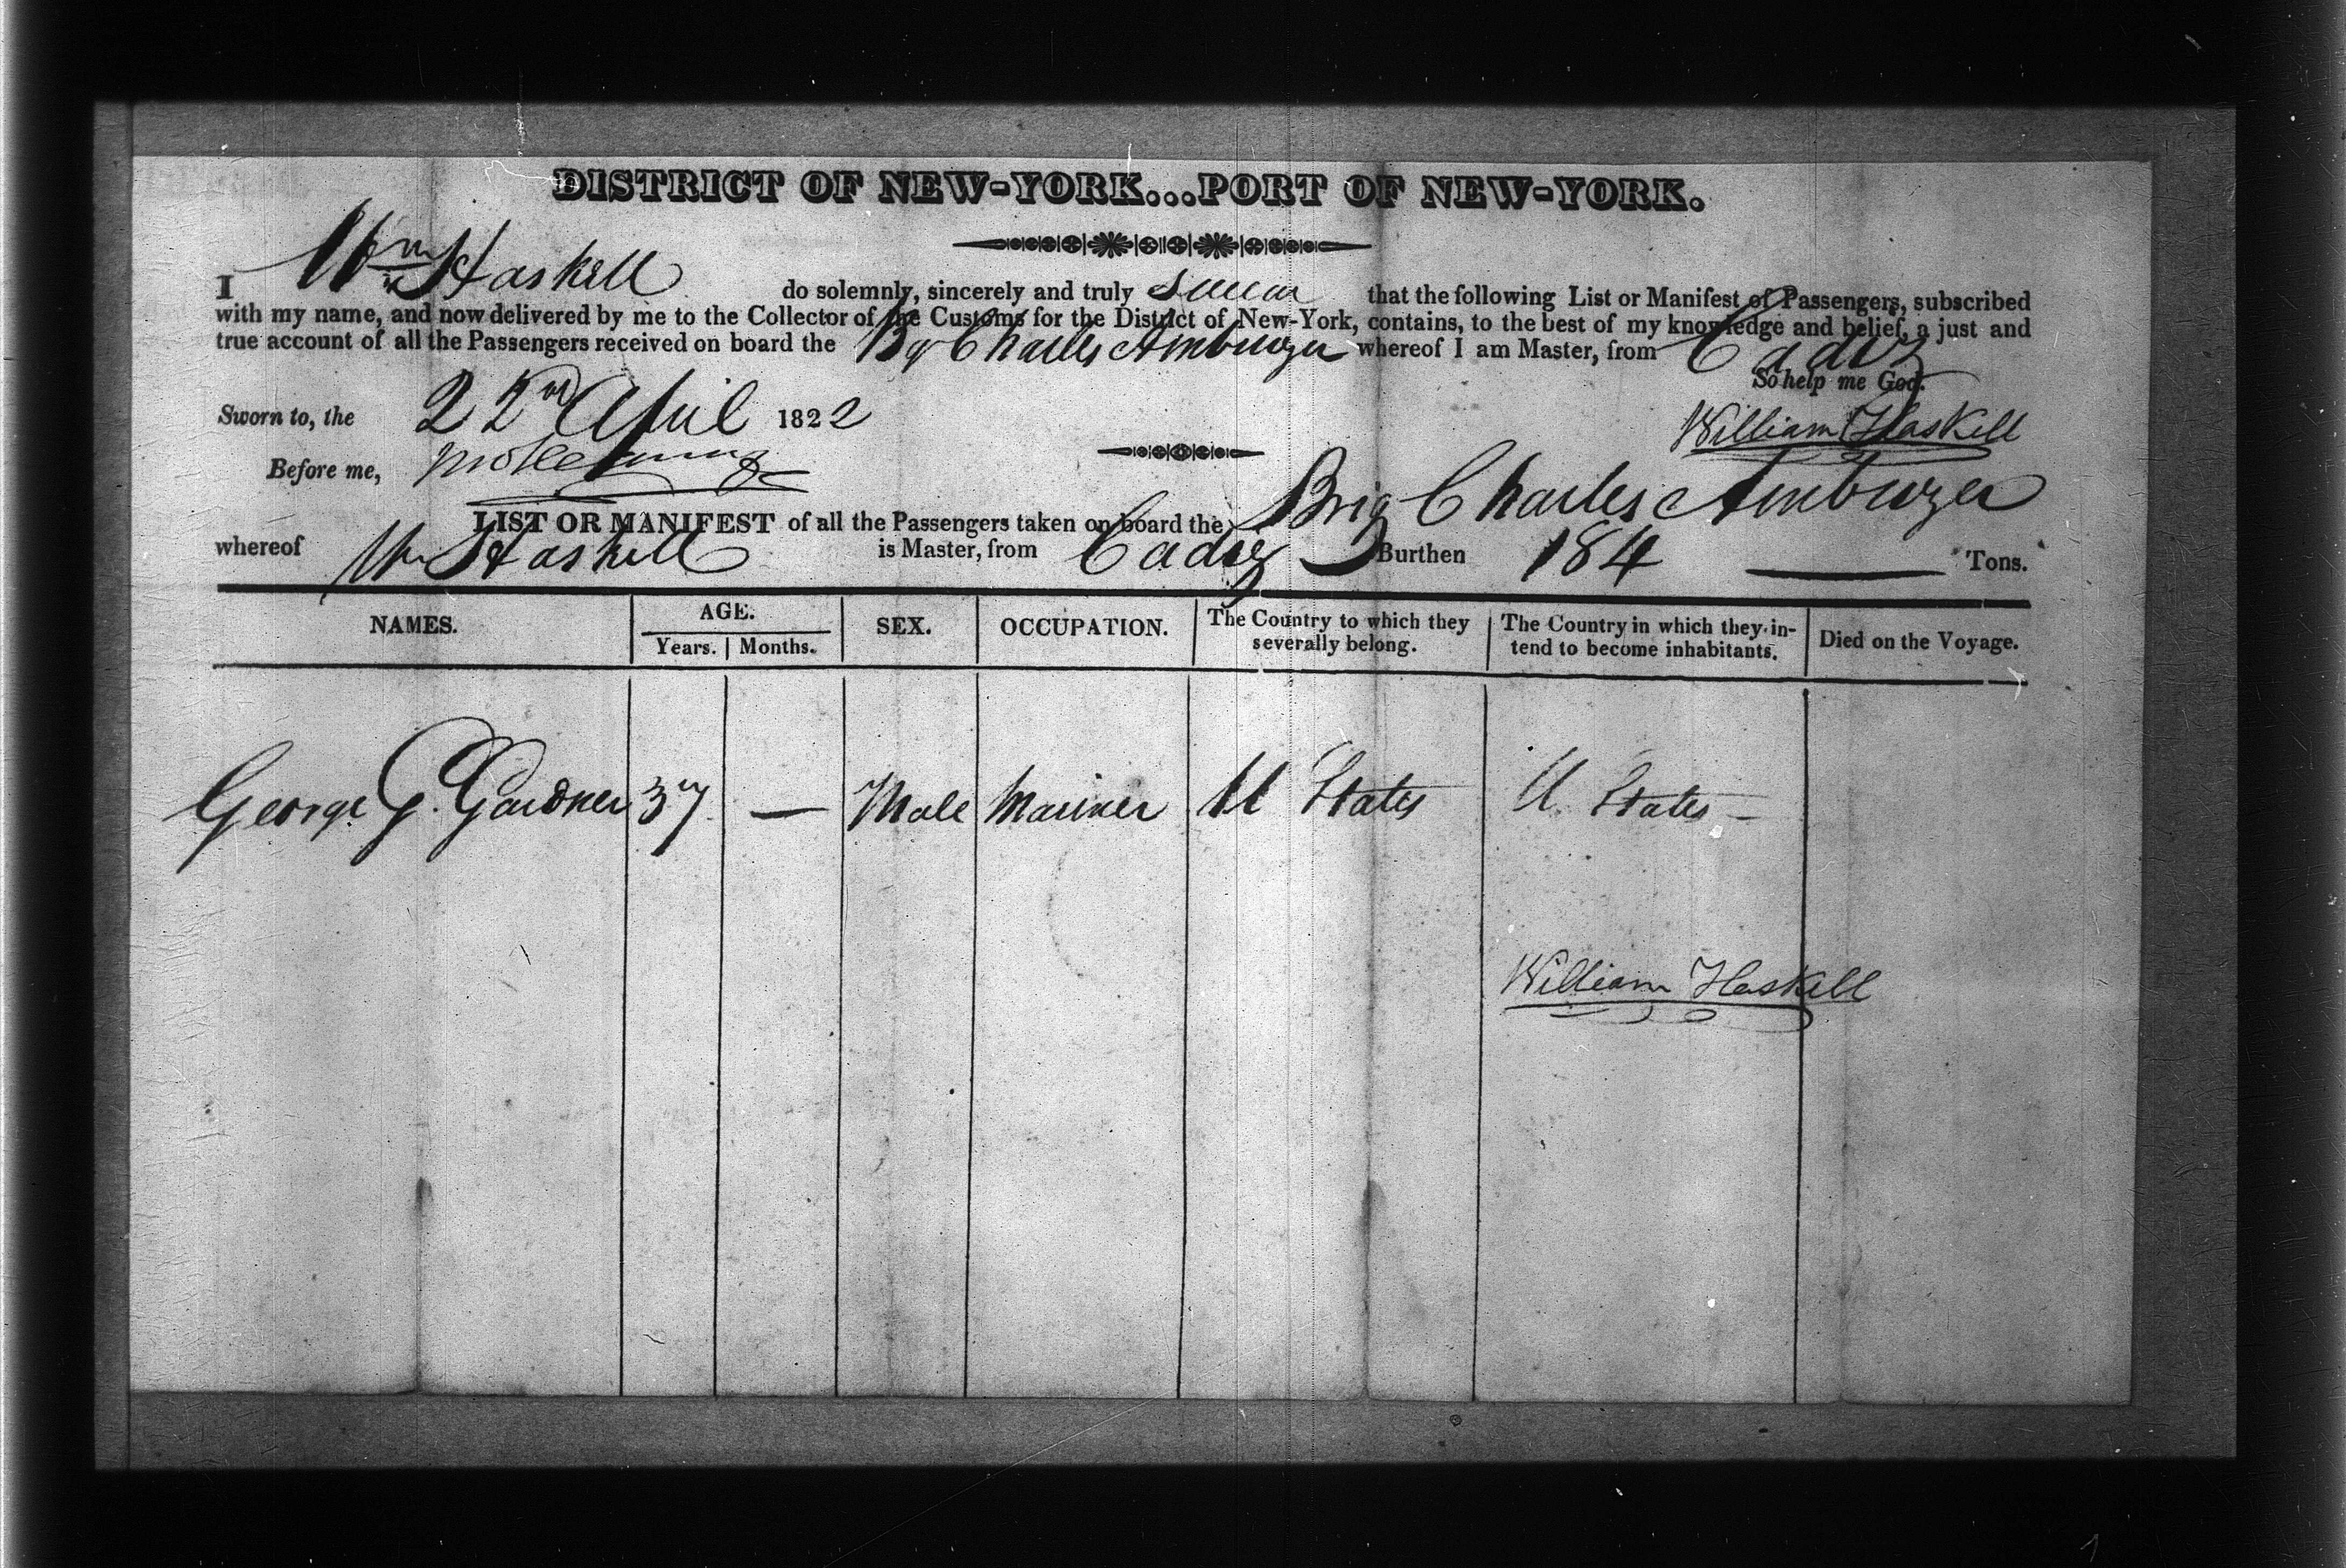 DISTRICT OF NEW-YORK...PORT OF NEW-YORK.
I Wm Haskell do solemnly, sincerely and truly swear that the following List or Manifest of Passengers, subscribed
with my name, and now delivered by me to the Collector of the Customs for the District of New-York, contains, to the best of my knowledge and belief, a just and
true account of all the Passengers received on board the Bg Charles Amburger whereof I am Master, from Cadiz
So help me God.
Sworn to, the 22nd April 1822
William Haskell
Before me,
LIST OR MANIFEST of all the Passengers taken on board the Brig Charles Amburger
whereof Wm Haskell is Master, from Cadiz Burthen 184 Tons.
NAMES. AGE. Years. Months. SEX. OCCUPATION. The Country to which they severally belong. The Country in which they in-tend to become inhabitants. Died on the Voyage.
George G. Gardner 37 — Male Mariner U States U. States —
William Haskell